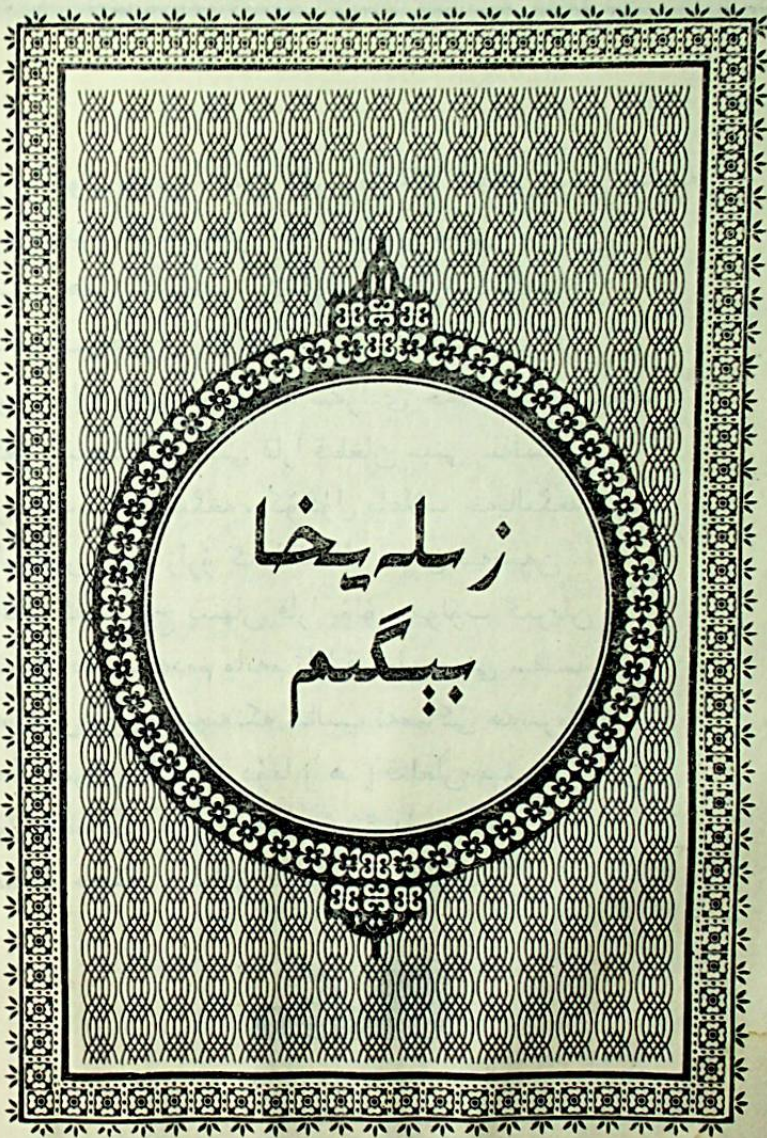 زىلەيخا
بېگىم